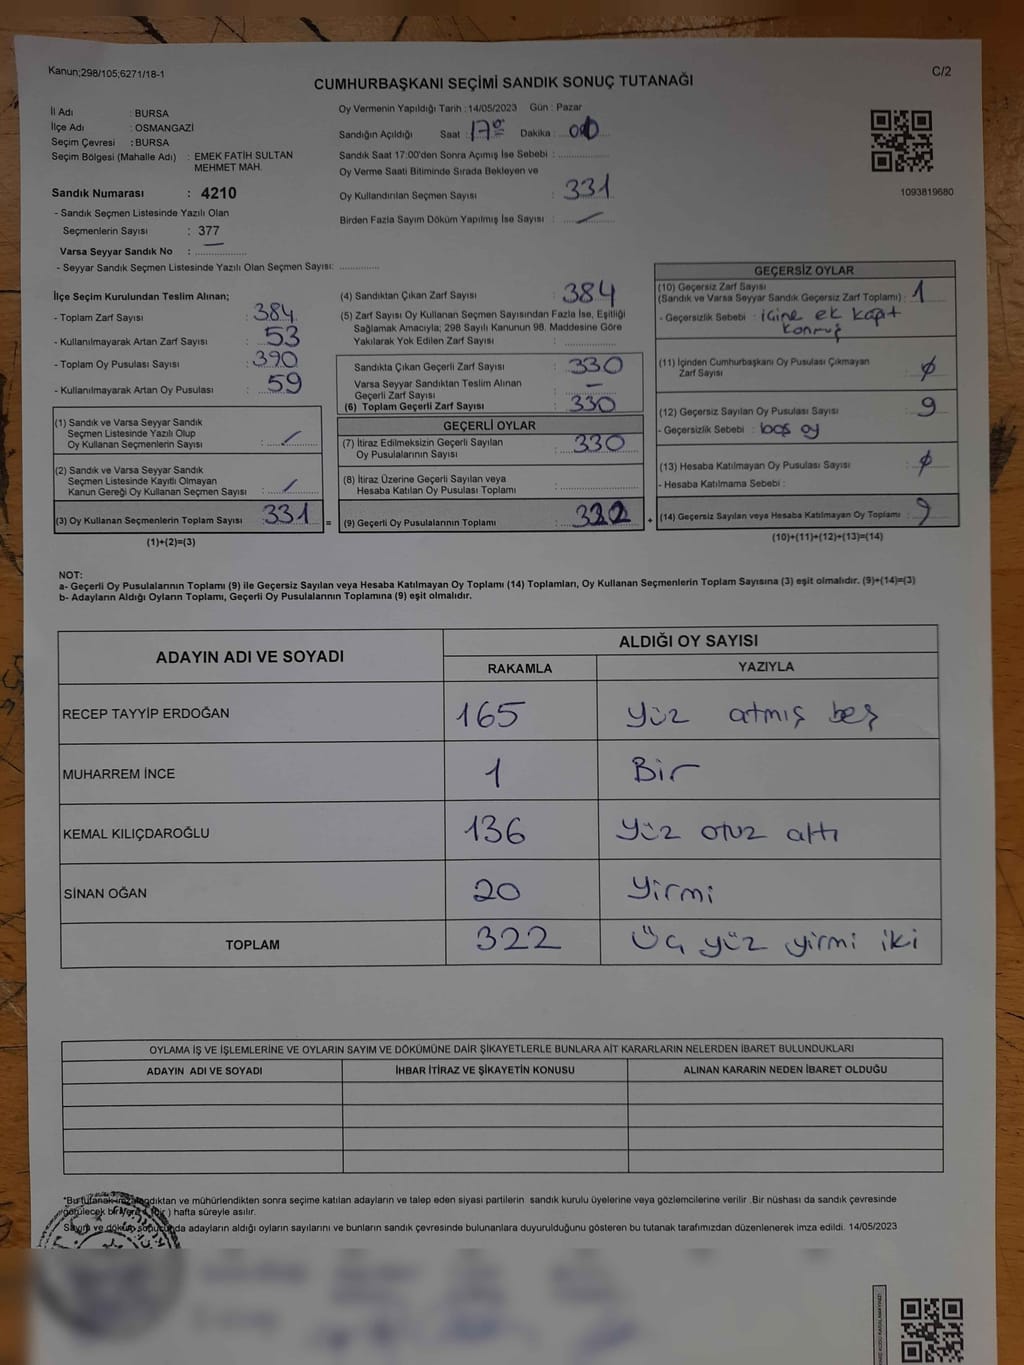 Kanun;298/105;6271/18-1
C/2
CUMHURBAŞKANI SEÇİMİ SANDIK SONUÇ TUTANAĞI
İl Adı : BURSA
İlçe Adı : OSMANGAZİ
Seçim Çevresi : BURSA
Seçim Bölgesi (Mahalle Adı) : EMEK FATİH SULTAN
MEHMET MAH.
Sandık Numarası : 4210
- Sandık Seçmen Listesinde Yazılı Olan
Seçmenlerin Sayısı : 377
Varsa Seyyar Sandık No :
- Seyyar Sandık Seçmen Listesinde Yazılı Olan Seçmen Sayısı:
Oy Vermenin Yapıldığı Tarih : 14/05/2023 Gün : Pazar
Sandığın Açıldığı Saat : 17 Dakika :
Sandık Saat 17:00'den Sonra Açımış İse Sebebi :
Oy Verme Saati Bitiminde Sırada Bekleyen ve
Oy Kullandırılan Seçmen Sayısı : 331
Birden Fazla Sayım Döküm Yapılmış İse Sayısı : —
1093819680
İlçe Seçim Kurulundan Teslim Alınan;
- Toplam Zarf Sayısı : 384
- Kullanılmayarak Artan Zarf Sayısı : 53
- Toplam Oy Pusulası Sayısı : 390
- Kullanılmayarak Artan Oy Pusulası : 59
(1) Sandık ve Varsa Seyyar Sandık
Seçmen Listesinde Yazılı Olup
Oy Kullanan Seçmenlerin Sayısı : /
(2) Sandık ve Varsa Seyyar Sandık
Seçmen Listesinde Kayıtlı Olmayan
Kanun Gereği Oy Kullanan Seçmen Sayısı : /
(3) Oy Kullanan Seçmenlerin Toplam Sayısı : 331 =
(1)+(2)=(3)
(4) Sandıktan Çıkan Zarf Sayısı : 384
(5) Zarf Sayısı Oy Kullanan Seçmen Sayısından Fazla İse, Eşitliği
Sağlamak Amacıyla; 298 Sayılı Kanunun 98. Maddesine Göre
Yakılarak Yok Edilen Zarf Sayısı :
Sandıkta Çıkan Geçerli Zarf Sayısı : 330
Varsa Seyyar Sandıktan Teslim Alınan
Geçerli Zarf Sayısı : —
(6) Toplam Geçerli Zarf Sayısı : 330
GEÇERLİ OYLAR
(7) İtiraz Edilmeksizin Geçerli Sayılan
Oy Pusulalarının Sayısı : 330
(8) İtiraz Üzerine Geçerli Sayılan veya
Hesaba Katılan Oy Pusulası Toplamı :
(9) Geçerli Oy Pusulalarının Toplamı : 322 +
GEÇERSİZ OYLAR
(10) Geçersiz Zarf Sayısı
(Sandık ve Varsa Seyyar Sandık Geçersiz Zarf Toplamı) : 1
- Geçersizlik Sebebi : içine ek kağıt
konmuş
(11) İçinden Cumhurbaşkanı Oy Pusulası Çıkmayan
Zarf Sayısı : ∅
(12) Geçersiz Sayılan Oy Pusulası Sayısı : 9
- Geçersizlik Sebebi : boş oy
(13) Hesaba Katılmayan Oy Pusulası Sayısı : ∅
- Hesaba Katılmama Sebebi :
(14) Geçersiz Sayılan veya Hesaba Katılmayan Oy Toplamı : 9
(10)+(11)+(12)+(13)=(14)
NOT:
a- Geçerli Oy Pusulalarının Toplamı (9) ile Geçersiz Sayılan veya Hesaba Katılmayan Oy Toplamı (14) Toplamları, Oy Kullanan Seçmenlerin Toplam Sayısına (3) eşit olmalıdır. (9)+(14)=(3)
b- Adayların Aldığı Oyların Toplamı, Geçerli Oy Pusulalarının Toplamına (9) eşit olmalıdır.
ADAYIN ADI VE SOYADI
ALDIĞI OY SAYISI
RAKAMLA YAZIYLA
RECEP TAYYİP ERDOĞAN 165 Yüz atmış beş
MUHARREM İNCE 1 Bir
KEMAL KILIÇDAROĞLU 136 Yüz otuz altı
SİNAN OĞAN 20 Yirmi
TOPLAM 322 Üç yüz yirmi iki
OYLAMA İŞ VE İŞLEMLERİNE VE OYLARIN SAYIM VE DÖKÜMÜNE DAİR ŞİKAYETLERLE BUNLARA AİT KARARLARIN NELERDEN İBARET BULUNDUKLARI
ADAYIN ADI VE SOYADI İHBAR İTİRAZ VE ŞİKAYETİN KONUSU ALINAN KARARIN NEDEN İBARET OLDUĞU
*Bu tutanak imzalandıktan ve mühürlendikten sonra seçime katılan adayların ve talep eden siyasi partilerin sandık kurulu üyelerine veya gözlemcilerine verilir .Bir nüshası da sandık çevresinde
görülecek bir yere ) hafta süreyle asılır.
adayların aldığı oyların sayılarını ve bunların sandık çevresinde bulunanlara duyurulduğunu gösteren bu tutanak tarafımızdan düzenlenerek imza edildi. 14/05/2023